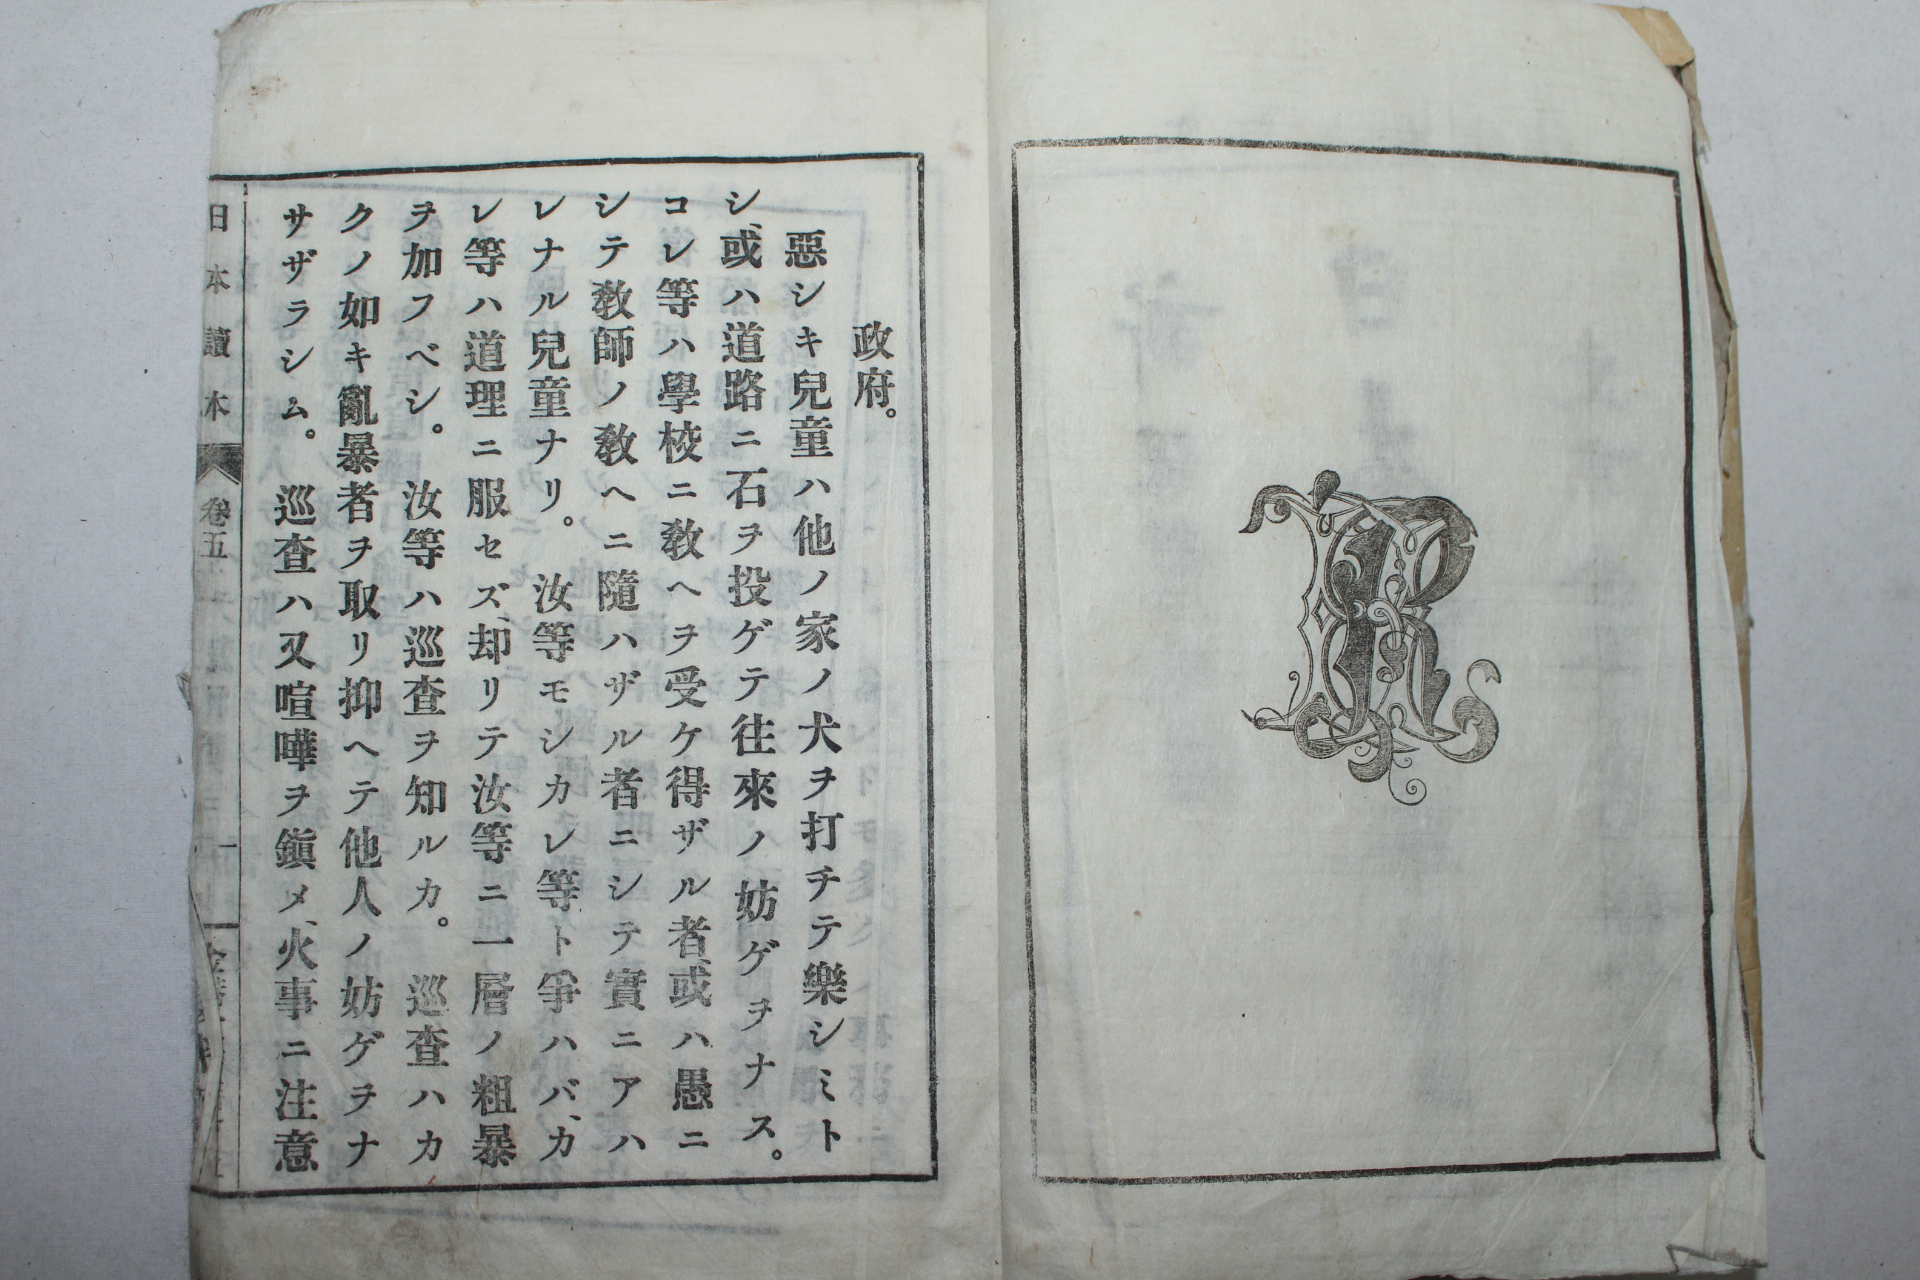 R
政府。
惡シキ兒童ハ他ノ家ノ犬ヲ打チテ樂シミト
シ、或ハ道路ニ石ヲ投ゲテ往來ノ妨ゲヲナス。
コレ等ハ學校ニ敎ヘヲ受ケ得ザル者、或ハ愚ニ
シテ敎師ノ敎ヘニ隨ハザル者ニシテ實ニアハ
レナル兒童ナリ。汝等モシカレ等ト爭ハバ、カ
レ等ハ道理ニ服セズ、却リテ汝等ニ一層ノ粗暴
ヲ加フベシ。汝等ハ巡査ヲ知ルカ。巡査ハカ
クノ如キ亂暴者ヲ取リ抑ヘテ他人ノ妨ゲヲナ
サザラシム。巡査ハ又喧嘩ヲ鎭メ、火事ニ注意
日本讀本 卷五 一